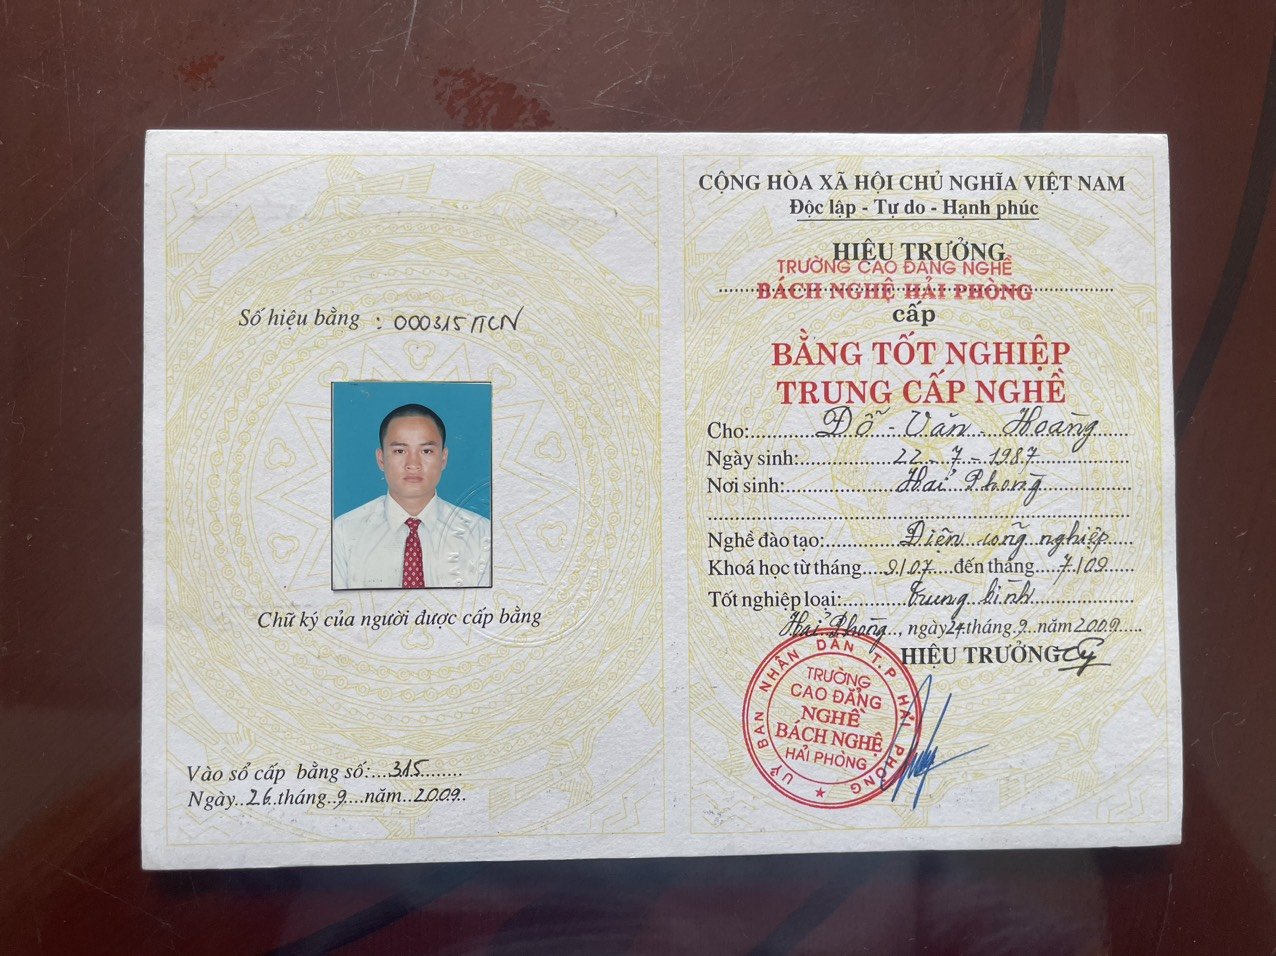 Số hiệu bằng : 000315/TCN
Chữ ký của người được cấp bằng
Vào sổ cấp bằng số:....315........
Ngày..26.tháng..9....năm..2009..
CỘNG HÒA XÃ HỘI CHỦ NGHĨA VIỆT NAM
Độc lập - Tự do - Hạnh phúc
HIỆU TRƯỞNG
TRƯỜNG CAO ĐẲNG NGHỀ
BÁCH NGHỆ HẢI PHÒNG
cấp
BẰNG TỐT NGHIỆP
TRUNG CẤP NGHỀ
Cho:........Đỗ - Văn - Hoàng......
Ngày sinh:........22 - 7 - 1987........
Nơi sinh:........Hải Phòng........
Nghề đào tạo:........Điện công nghiệp.....
Khoá học từ tháng....9/07....đến tháng....7/09..
Tốt nghiệp loại:........Trung bình........
Hải Phòng.., ngày24.tháng..9..năm 2009.....
HIỆU TRƯỞNG
UỶ BAN NHÂN DÂN T.P HẢI PHÒNG
TRƯỜNG
CAO ĐẲNG
NGHỀ
BÁCH NGHỆ
HẢI PHÒNG